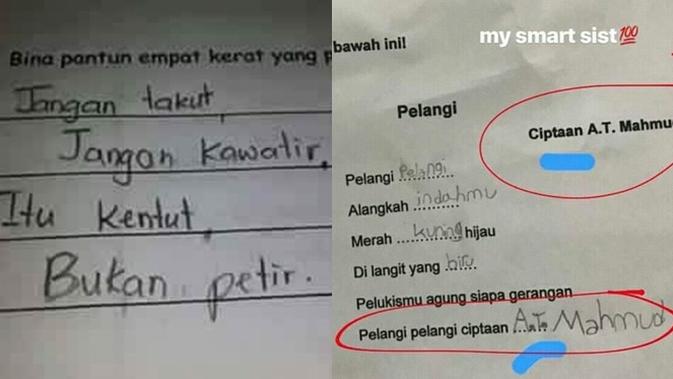 Bina pantun empat kerat yang p
Jangan takut,
Jangan kawatir,
Itu kentut,
Bukan petir.
my smart sist💯
bawah ini!
Pelangi
Ciptaan A.T. Mahmu
Pelangi Pelangi
Alangkah indahmu
Merah kuning hijau
Di langit yang biru
Pelukismu agung siapa gerangan
Pelangi pelangi ciptaan A.T. Mahmud